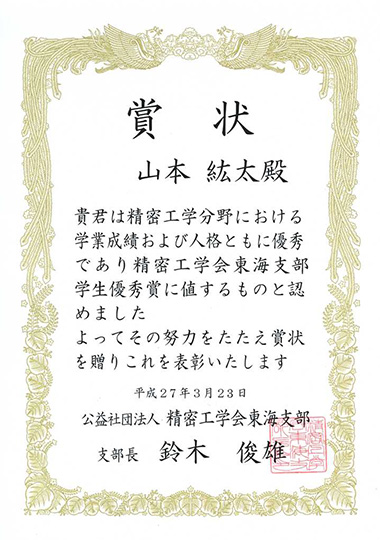 賞状
山本 紘太殿
貴君は精密工学分野における
学業成績および人格ともに優秀
であり精密工学会東海支部
学生優秀賞に値するものと認
めました
よってその努力をたたえ賞状
を贈りこれを表彰いたします
平成27年3月23日
公益社団法人 精密工学会東海支部
支部長 鈴木 俊雄